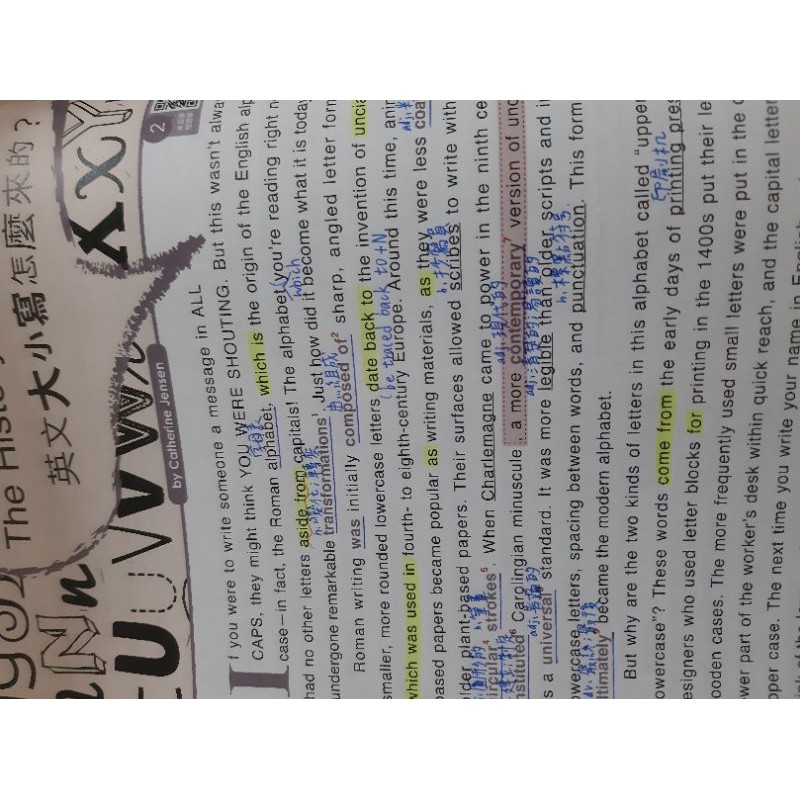 The History
英文大小寫怎麼來的?
N n
U u V v W X x Y
by Catherine Jensen
2
If you were to write someone a message in ALL
CAPS, they might think YOU WERE SHOUTING. But this wasn't
case—in fact, the Roman alphabet, which is the origin of the English
字母表
had no other letters aside from capitals! The alphabet you're reading right
which
undergone remarkable transformations¹. Just how did it become what it is
n.變化;轉變
Roman writing was initially composed of² sharp, angled letter
由…組成
smaller, more rounded lowercase letters date back to the invention of
(be traced back to+N
which was used in fourth- to eighth-century Europe. Around this time,
based papers became popular as writing materials, as they were less
older plant-based papers. Their surfaces allowed scribes to write with
n.抄寫員
strokes⁵. When Charlemagne came to power in the ninth
n.筆畫
Carolingian minuscule, a more contemporary⁷ version of
adj.現代的
as a universal standard. It was more legible than older scripts and
adj.普遍的
adj.清楚的;易讀的
lowercase letters, spacing between words, and punctuation. This
n.標點符號
ultimately became the modern alphabet.
But why are the two kinds of letters in this alphabet called
lowercase"? These words come from the early days of printing
印刷机
designers who used letter blocks for printing in the 1400s put their
wooden cases. The more frequently used small letters were put in the
lower part of the worker's desk within quick reach, and the capital
upper case. The next time you write your name in English